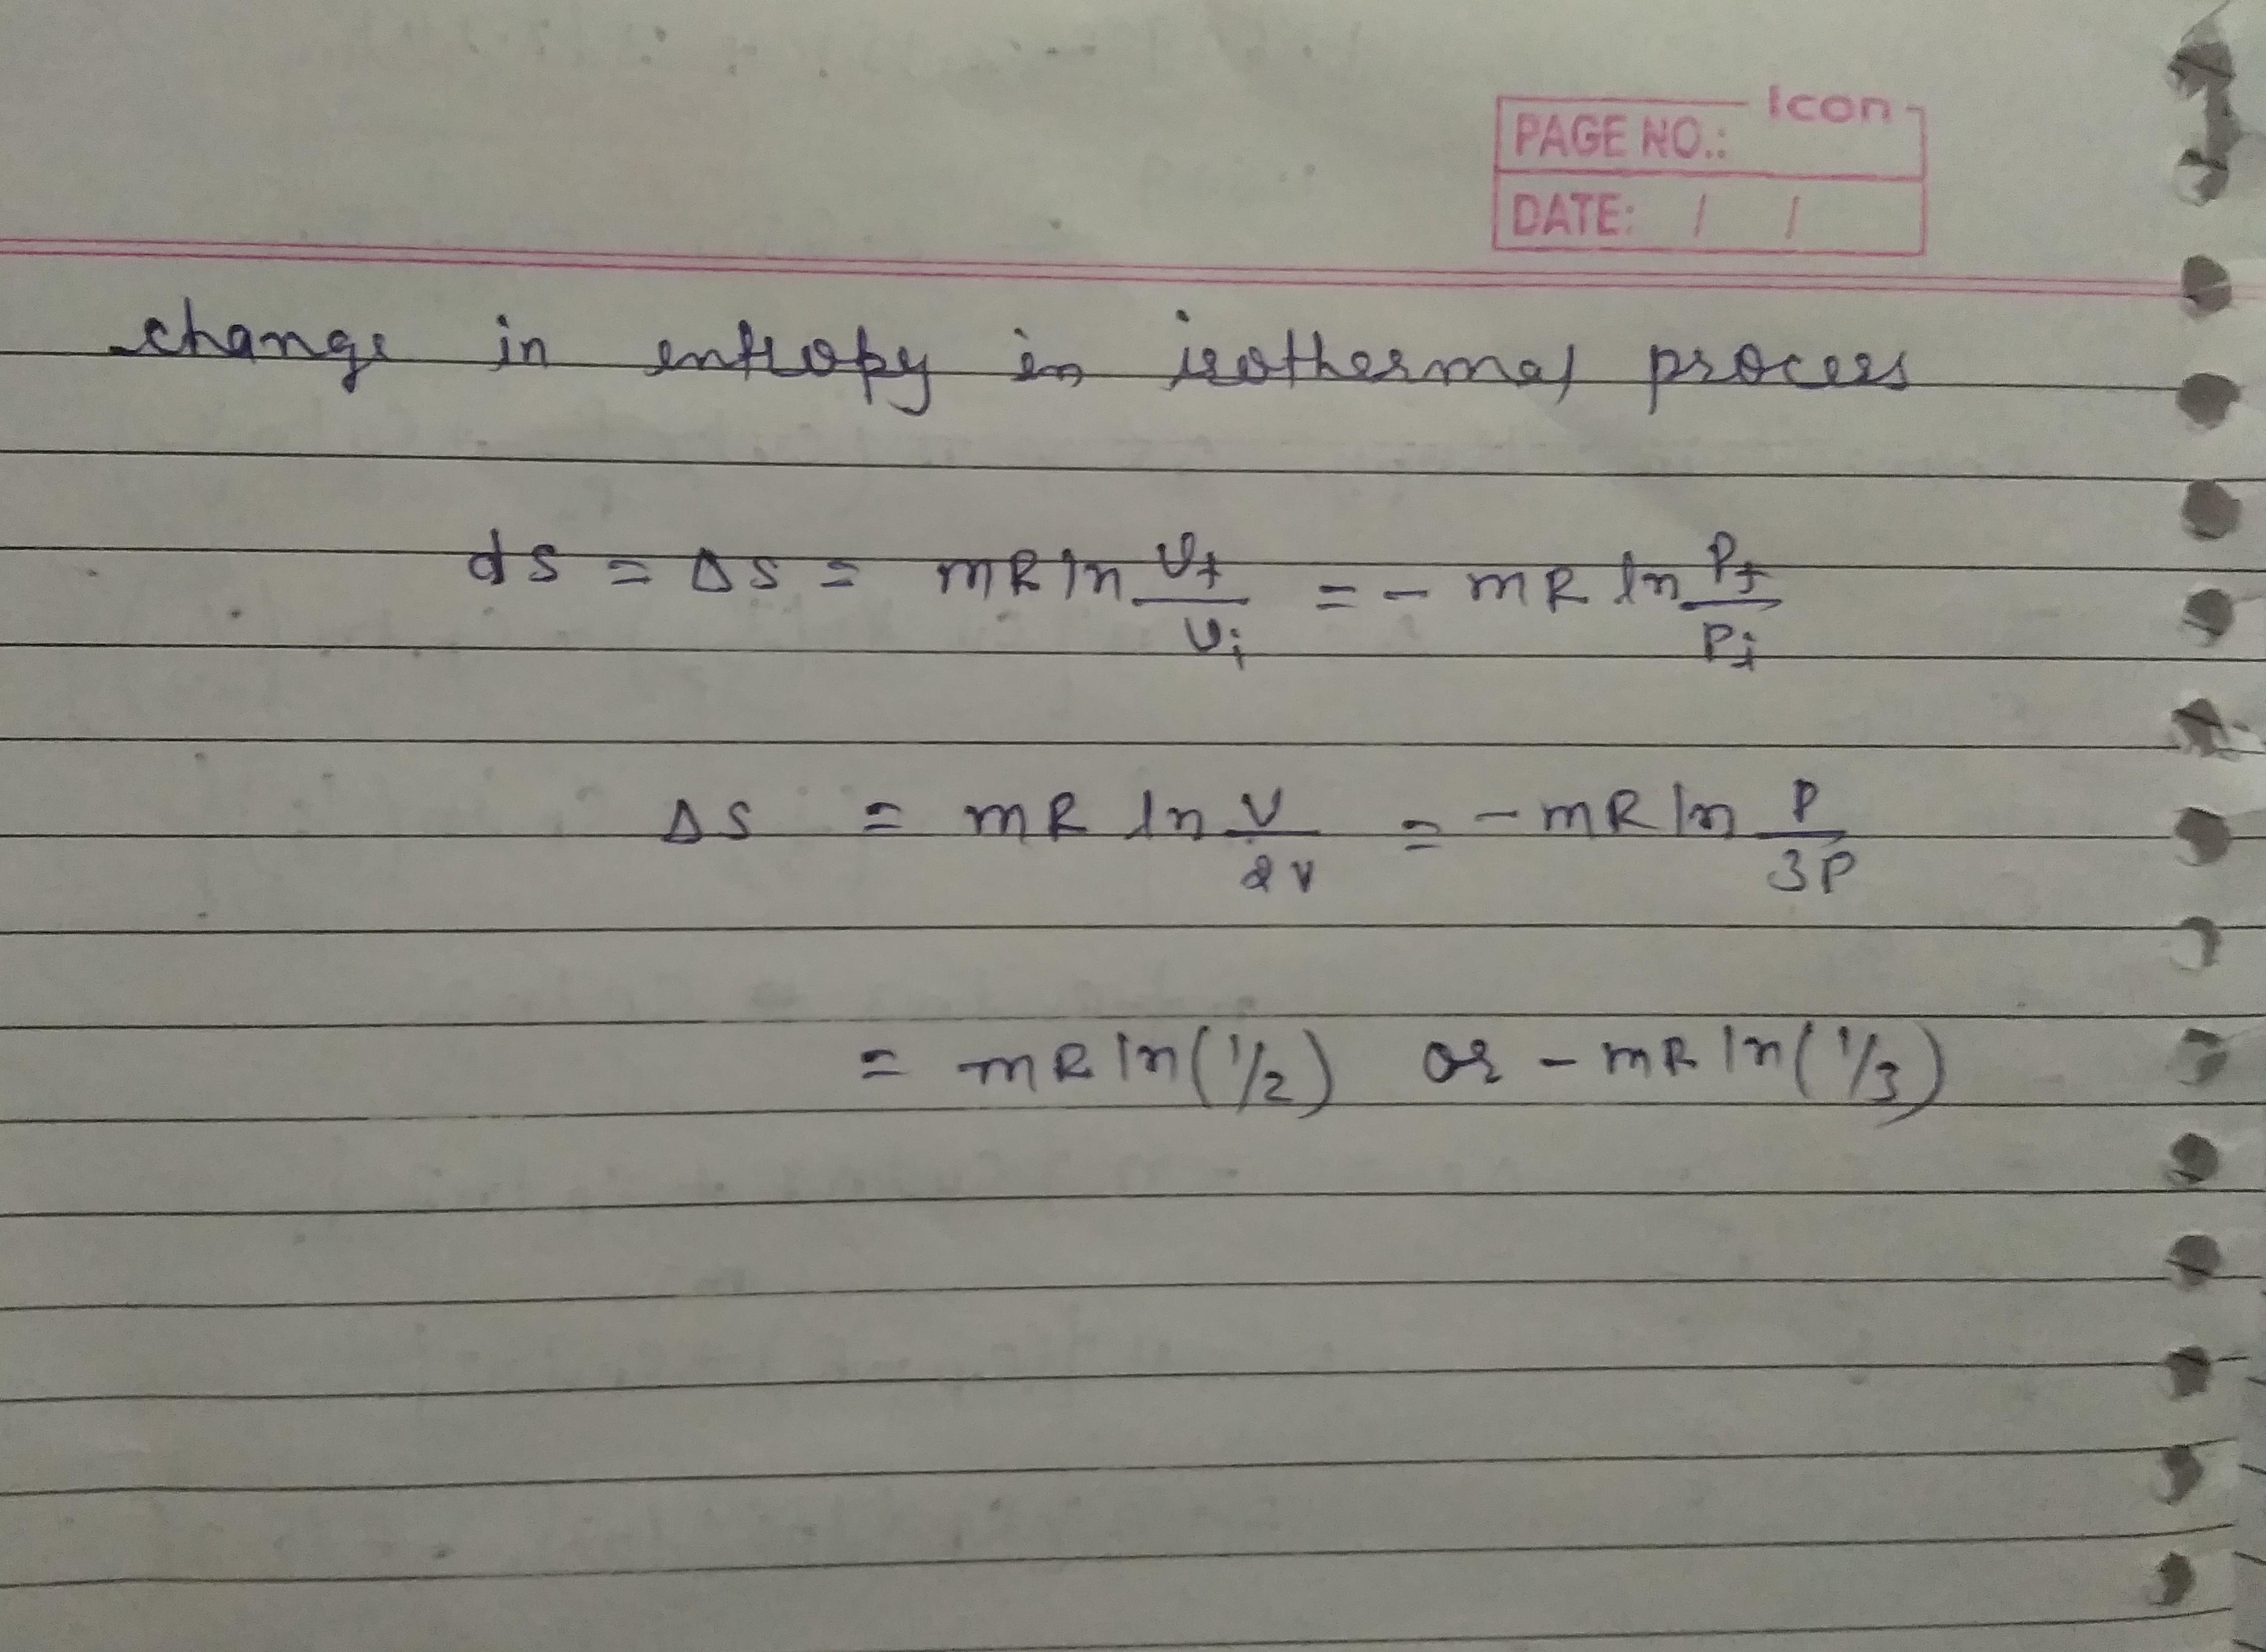 Icon
PAGE NO.:
DATE: / /
change in entropy in isothermal process
ds = Δs = mR ln Vf/Vi = - mR ln Pf/Pi
Δs = mR ln V/2V = - mR ln P/3P
= mR ln(1/2) or - mR ln(1/3)